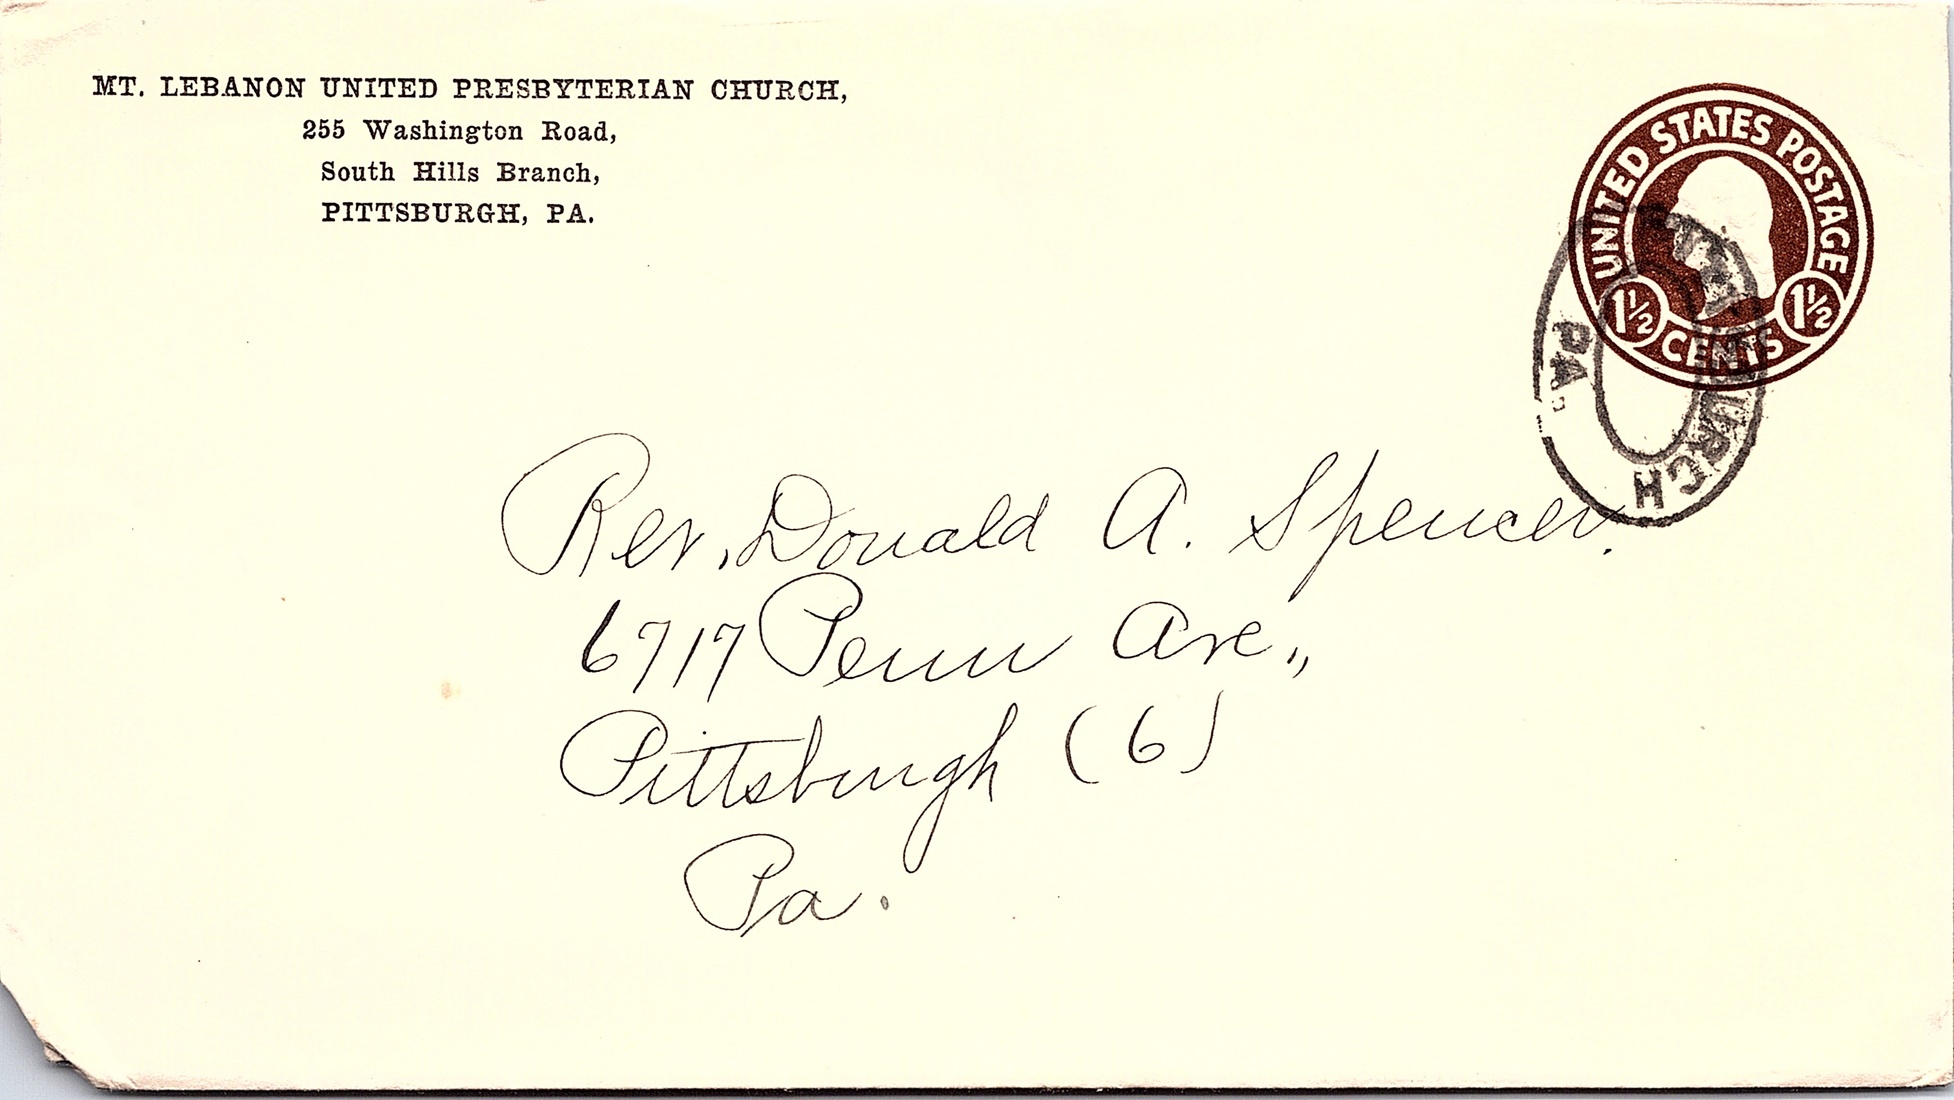 MT. LEBANON UNITED PRESBYTERIAN CHURCH,
255 Washington Road,
South Hills Branch,
PITTSBURGH, PA.
UNITED STATES POSTAGE
1½ CENTS 1½
PITTSBURGH
PA.
Rev. Donald A. Spencer.
6717 Penn Ave.,
Pittsburgh (6)
Pa.